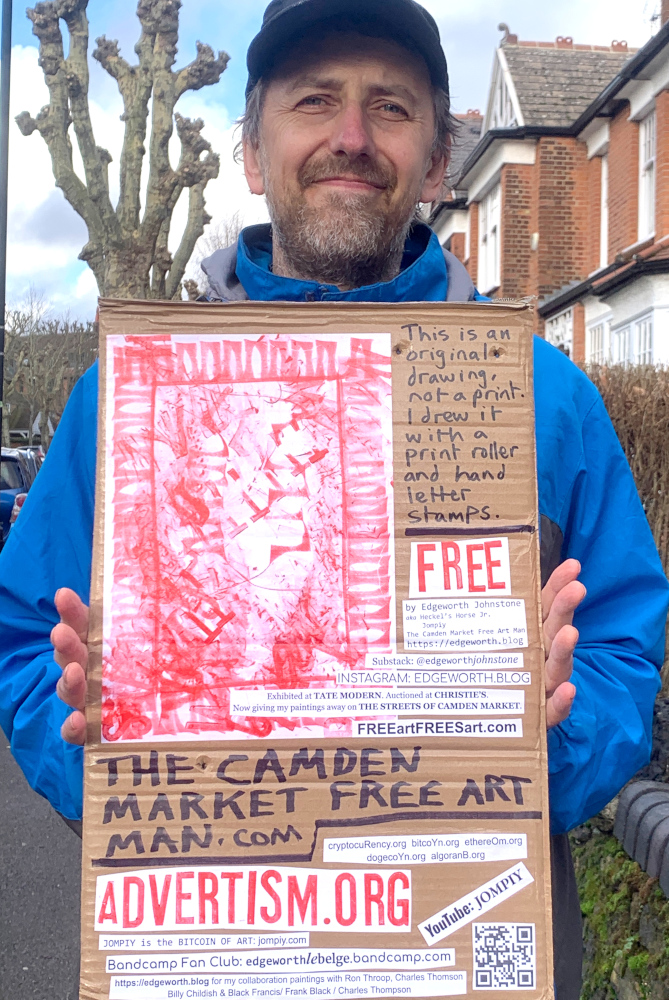 This is an
original
drawing,
not a print.
I drew it
with a
print roller
and hand
letter
stamps.
FREE
by Edgeworth Johnstone
aka Heckel's Horse Jr.
Jompiy
The Camden Market Free Art Man
https://edgeworth.blog
Substack: @edgeworthjohnstone
INSTAGRAM: EDGEWORTH.BLOG
Exhibited at TATE MODERN. Auctioned at CHRISTIE'S.
Now giving my paintings away on THE STREETS OF CAMDEN MARKET.
FREEartFREESart.com
THE CAMDEN
MARKET FREE ART
MAN.COM
cryptocuRency.org bitcoYn.org ethereOm.org
dogecoYn.org algoranB.org
ADVERTISM.ORG
YouTube: JOMPIY
JOMPIY is the BITCOIN OF ART: jompiy.com
Bandcamp Fan Club: edgeworthlebelge.bandcamp.com
https://edgeworth.blog for my collaboration paintings with Ron Throop, Charles Thomson
Billy Childish & Black Francis/ Frank Black / Charles Thompson